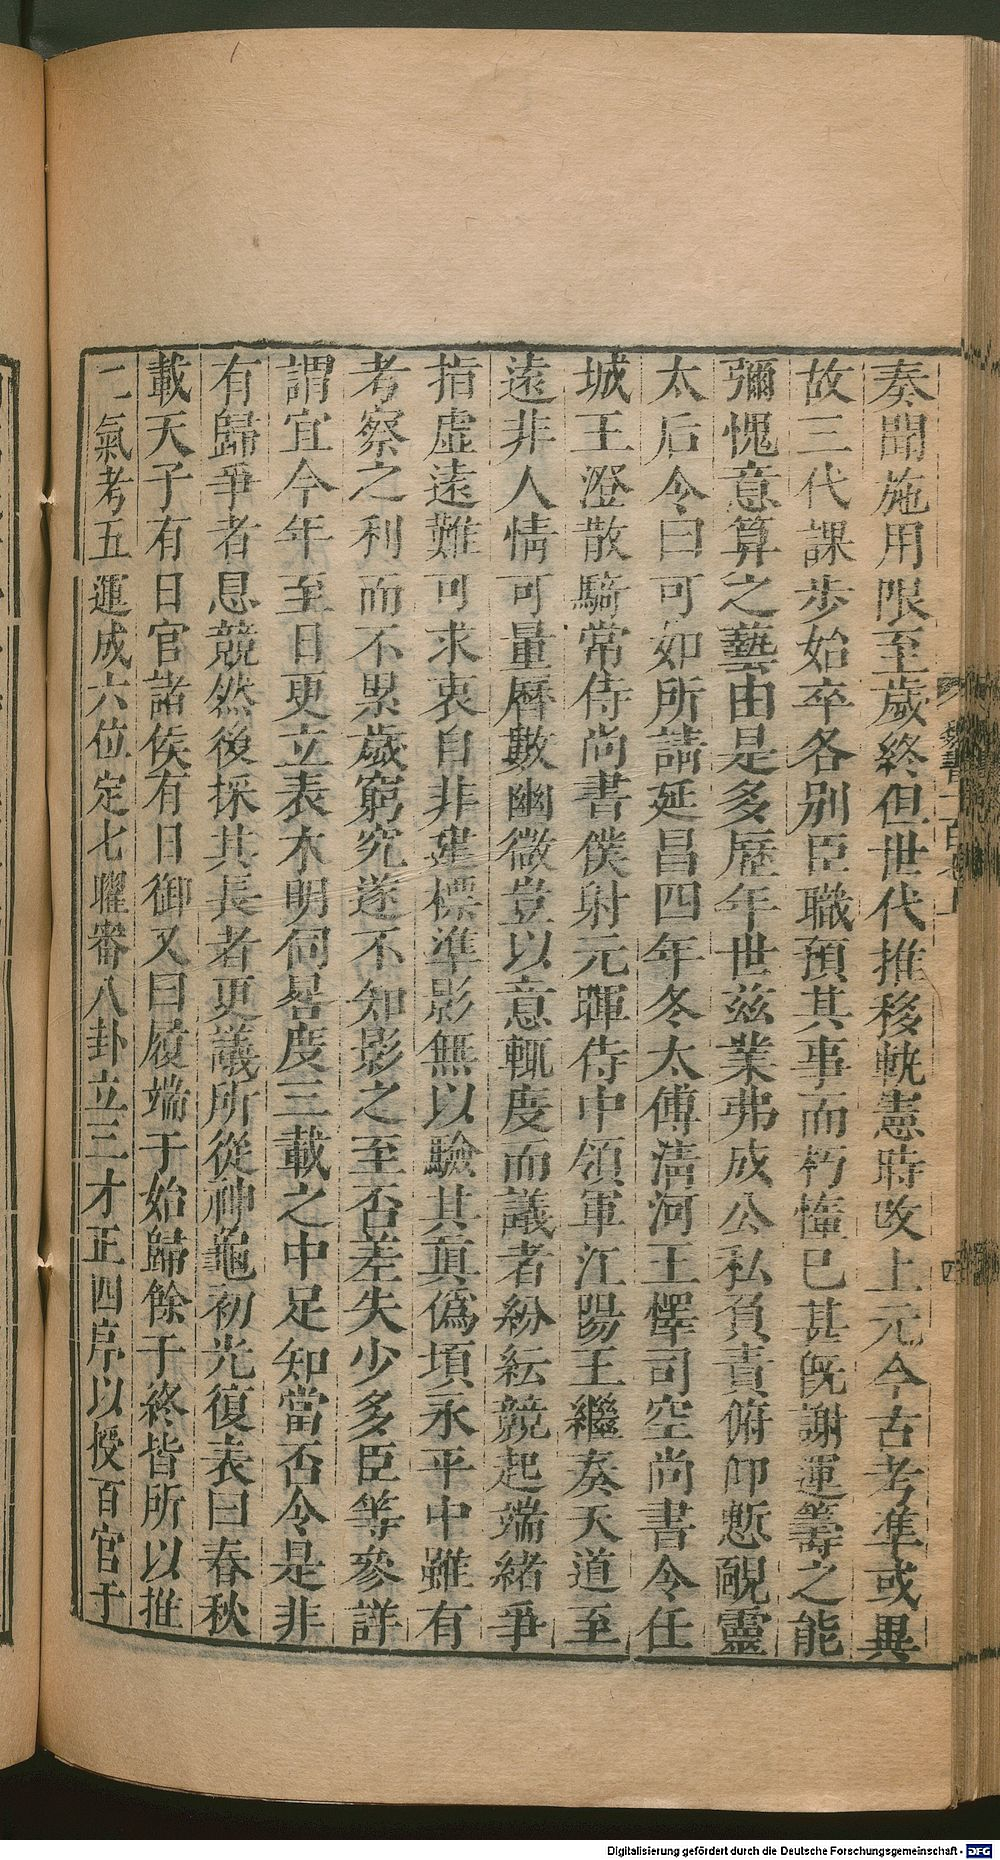 奏聞施用限至歲終但世代推移軌憲時改上元今古考準或異
故三代課步始卒各別臣職預其事而朽惰已甚旣謝運籌之能
彌愧意算之藝由是多歷年世茲業弗成公私負責俯仰慙靦靈
太后令曰可如所請延昌四年冬太傅淸河王懌司空尚書令任
城王澄散騎常侍尚書僕射元暉侍中領軍江陽王繼奏天道至
遠非人情可量曆數幽微豈以意輒度而議者紛紜競起端緒爭
指虛遠難可求衷自非建標準影無以驗其眞僞頃永平中雖有
考察之利而不累歲窮究遂不知影之至否差失少多臣等參詳
謂宜今年至日更立表木明伺晷度三載之中足知當否令是非
有歸爭者息競然後採其長者更議所從神龜初光復表曰春秋
載天子有日官諸侯有日御又曰履端于始歸餘于終皆所以推
二氣考五運成六位定七曜審八卦立三才正四序以授百官于
四
Digitalisierung gefördert durch die Deutsche Forschungsgemeinschaft - DFG